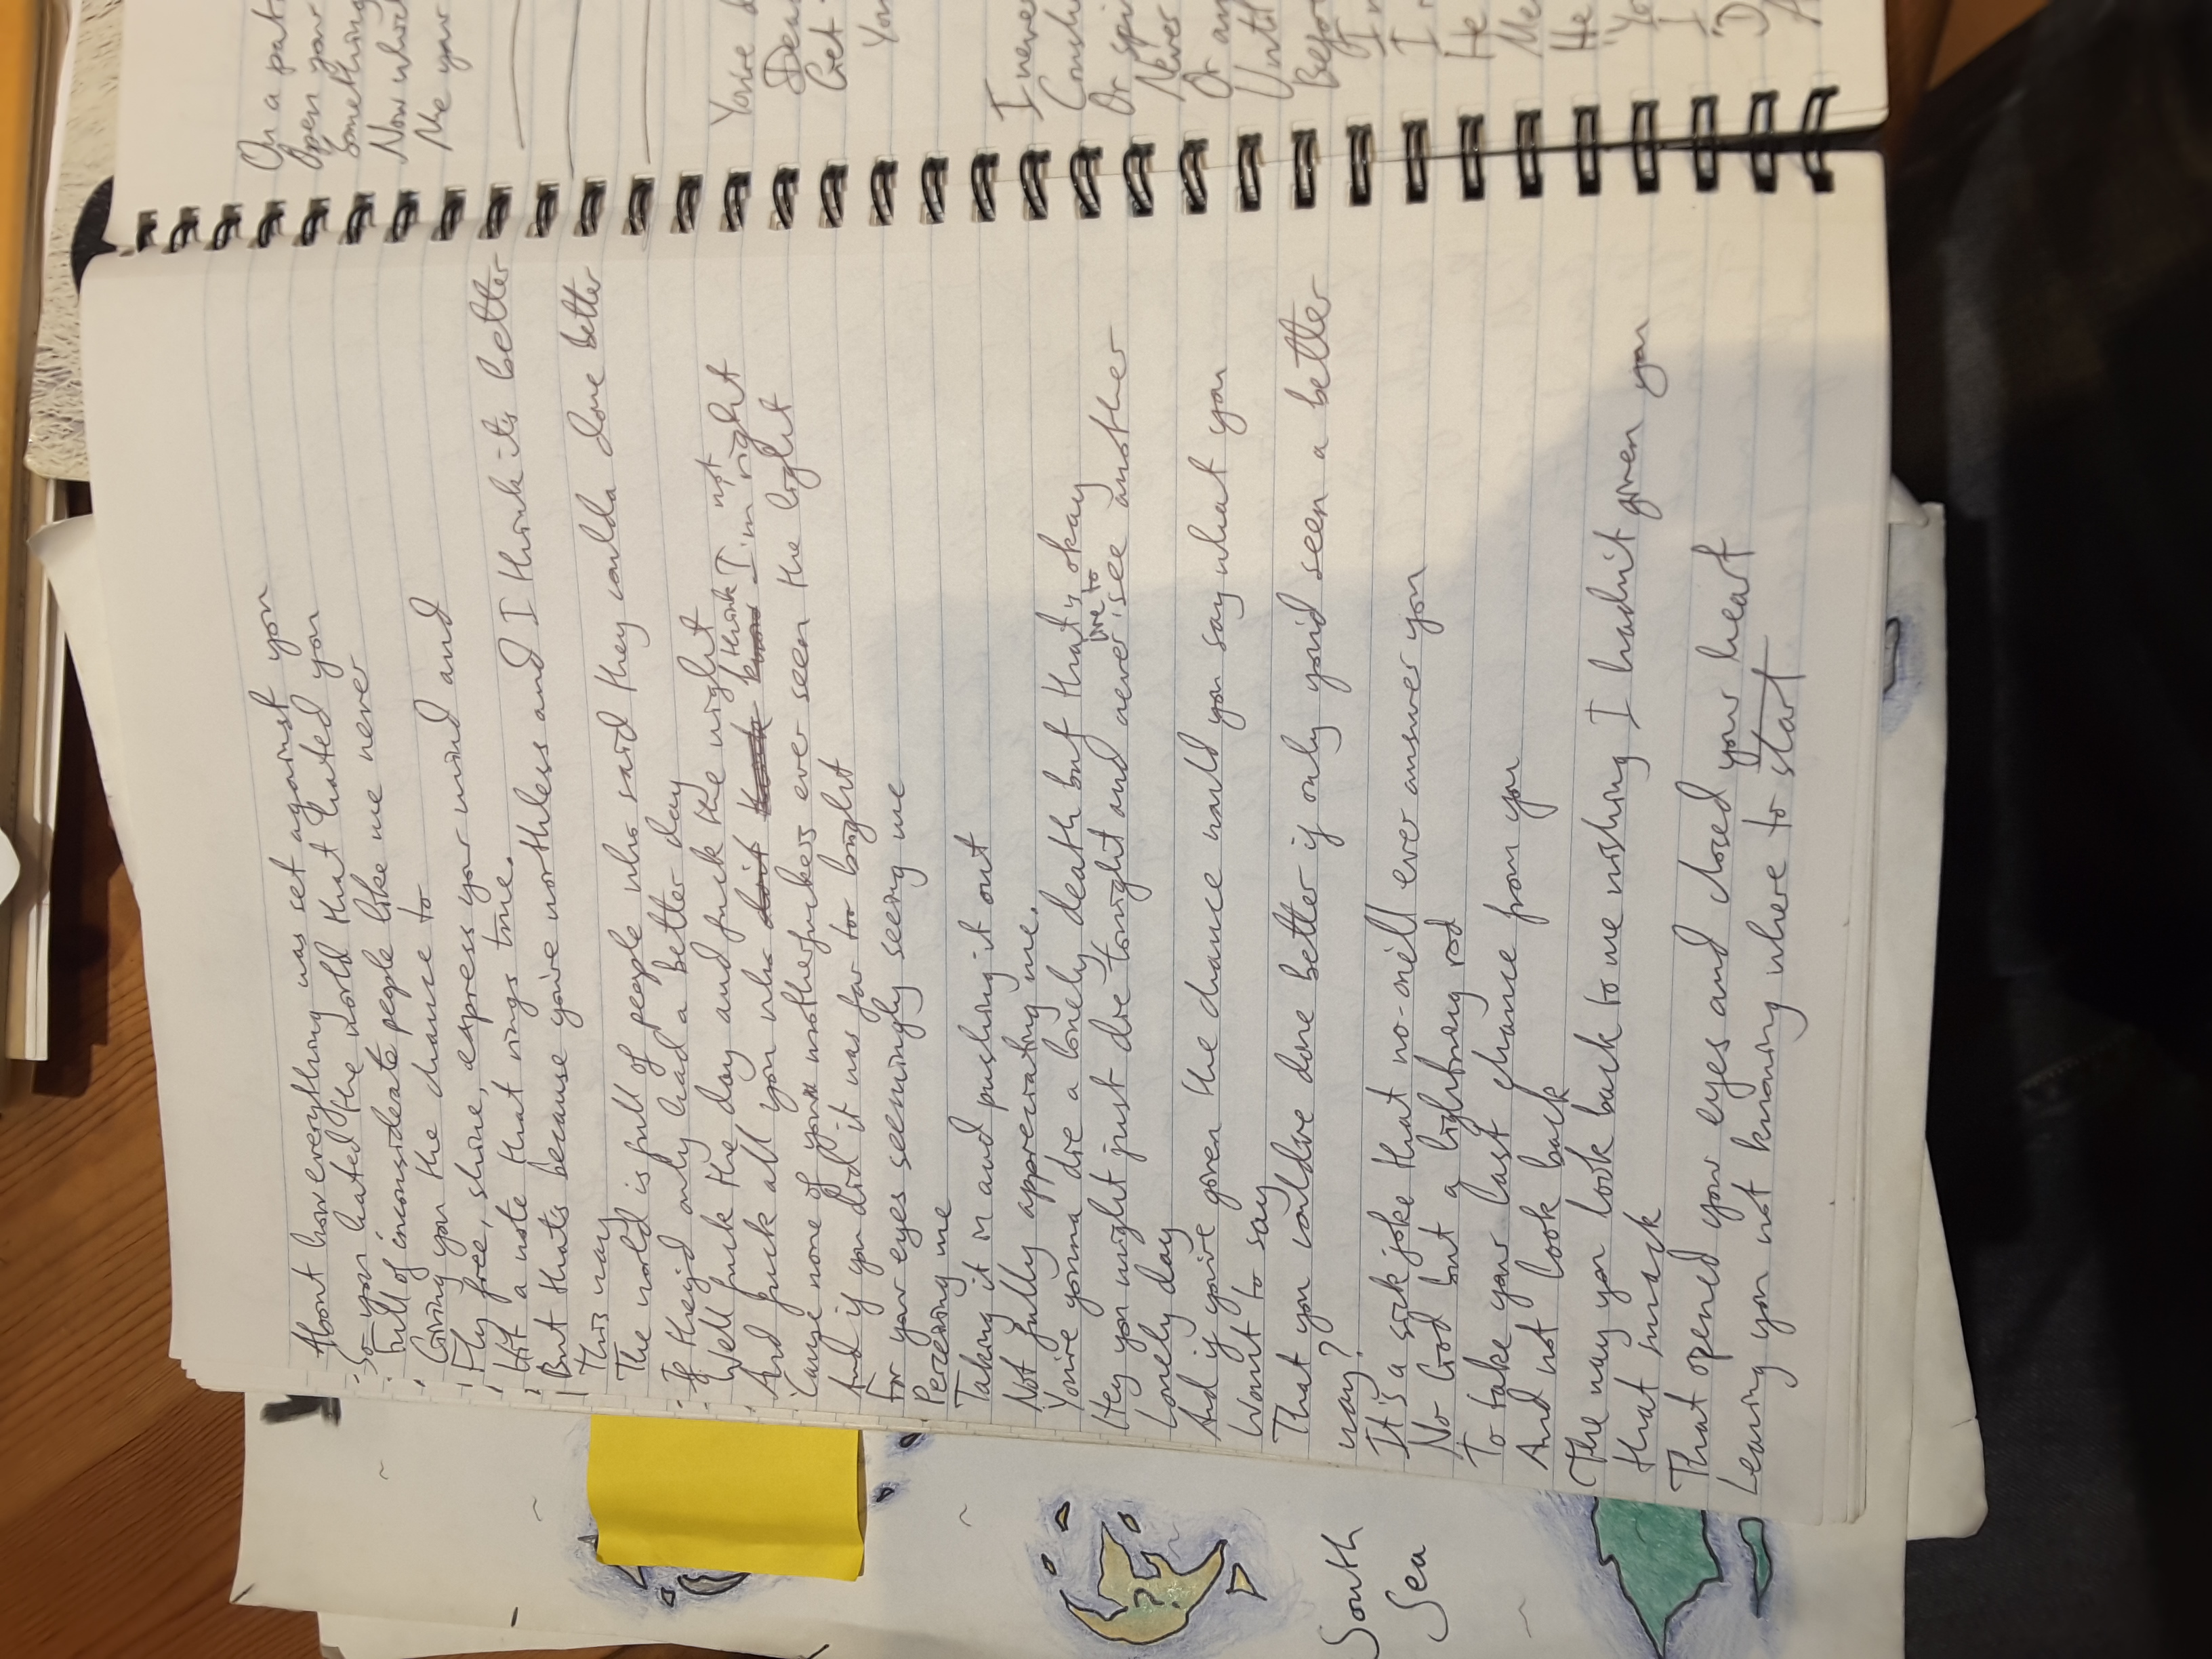 About how everything was set against you
So you hated the world that hated you
Full of inconsiderate people like me never
Giving you the chance to
Fly free, shine, express your mind and
Hit a note that rings true.
But that's because you're worthless and I think it's better
This way
The world is full of people who said they coulda done better
If they'd only had a better day
Well fuck the day and fuck the night
And fuck all you who don't think know think I'm not right
'Cause none of you motherfuckers ever seen the light
And if you did it was far too bright
For your eyes seemingly seeing me
Perceiving me
Taking it in and pushing it out
Not fully appreciating me.
You're gonna die a lonely death but that's okay
Hey you might just die tonight and never live to see another
Lonely day
And if you're given the chance would you say what you
Want to say
That you could've done better if only you'd seen a better
way?
It's a sick joke that no-one'll ever answer you
No God but a lightning rod
To take your last chance from you
And not look back
The way you look back to me wishing I hadn't given you
that smack
That opened your eyes and closed your heart
Leaving you not knowing where to start
South
Sea
?
On a
Open your
Something
Now
Me your
You're
Get
I never
Or
Never
Or
Until
I
He
Me
He
I